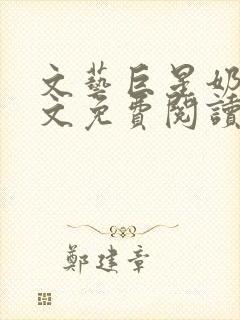 文藝巨星奶
文免費閱讀
鄭建章